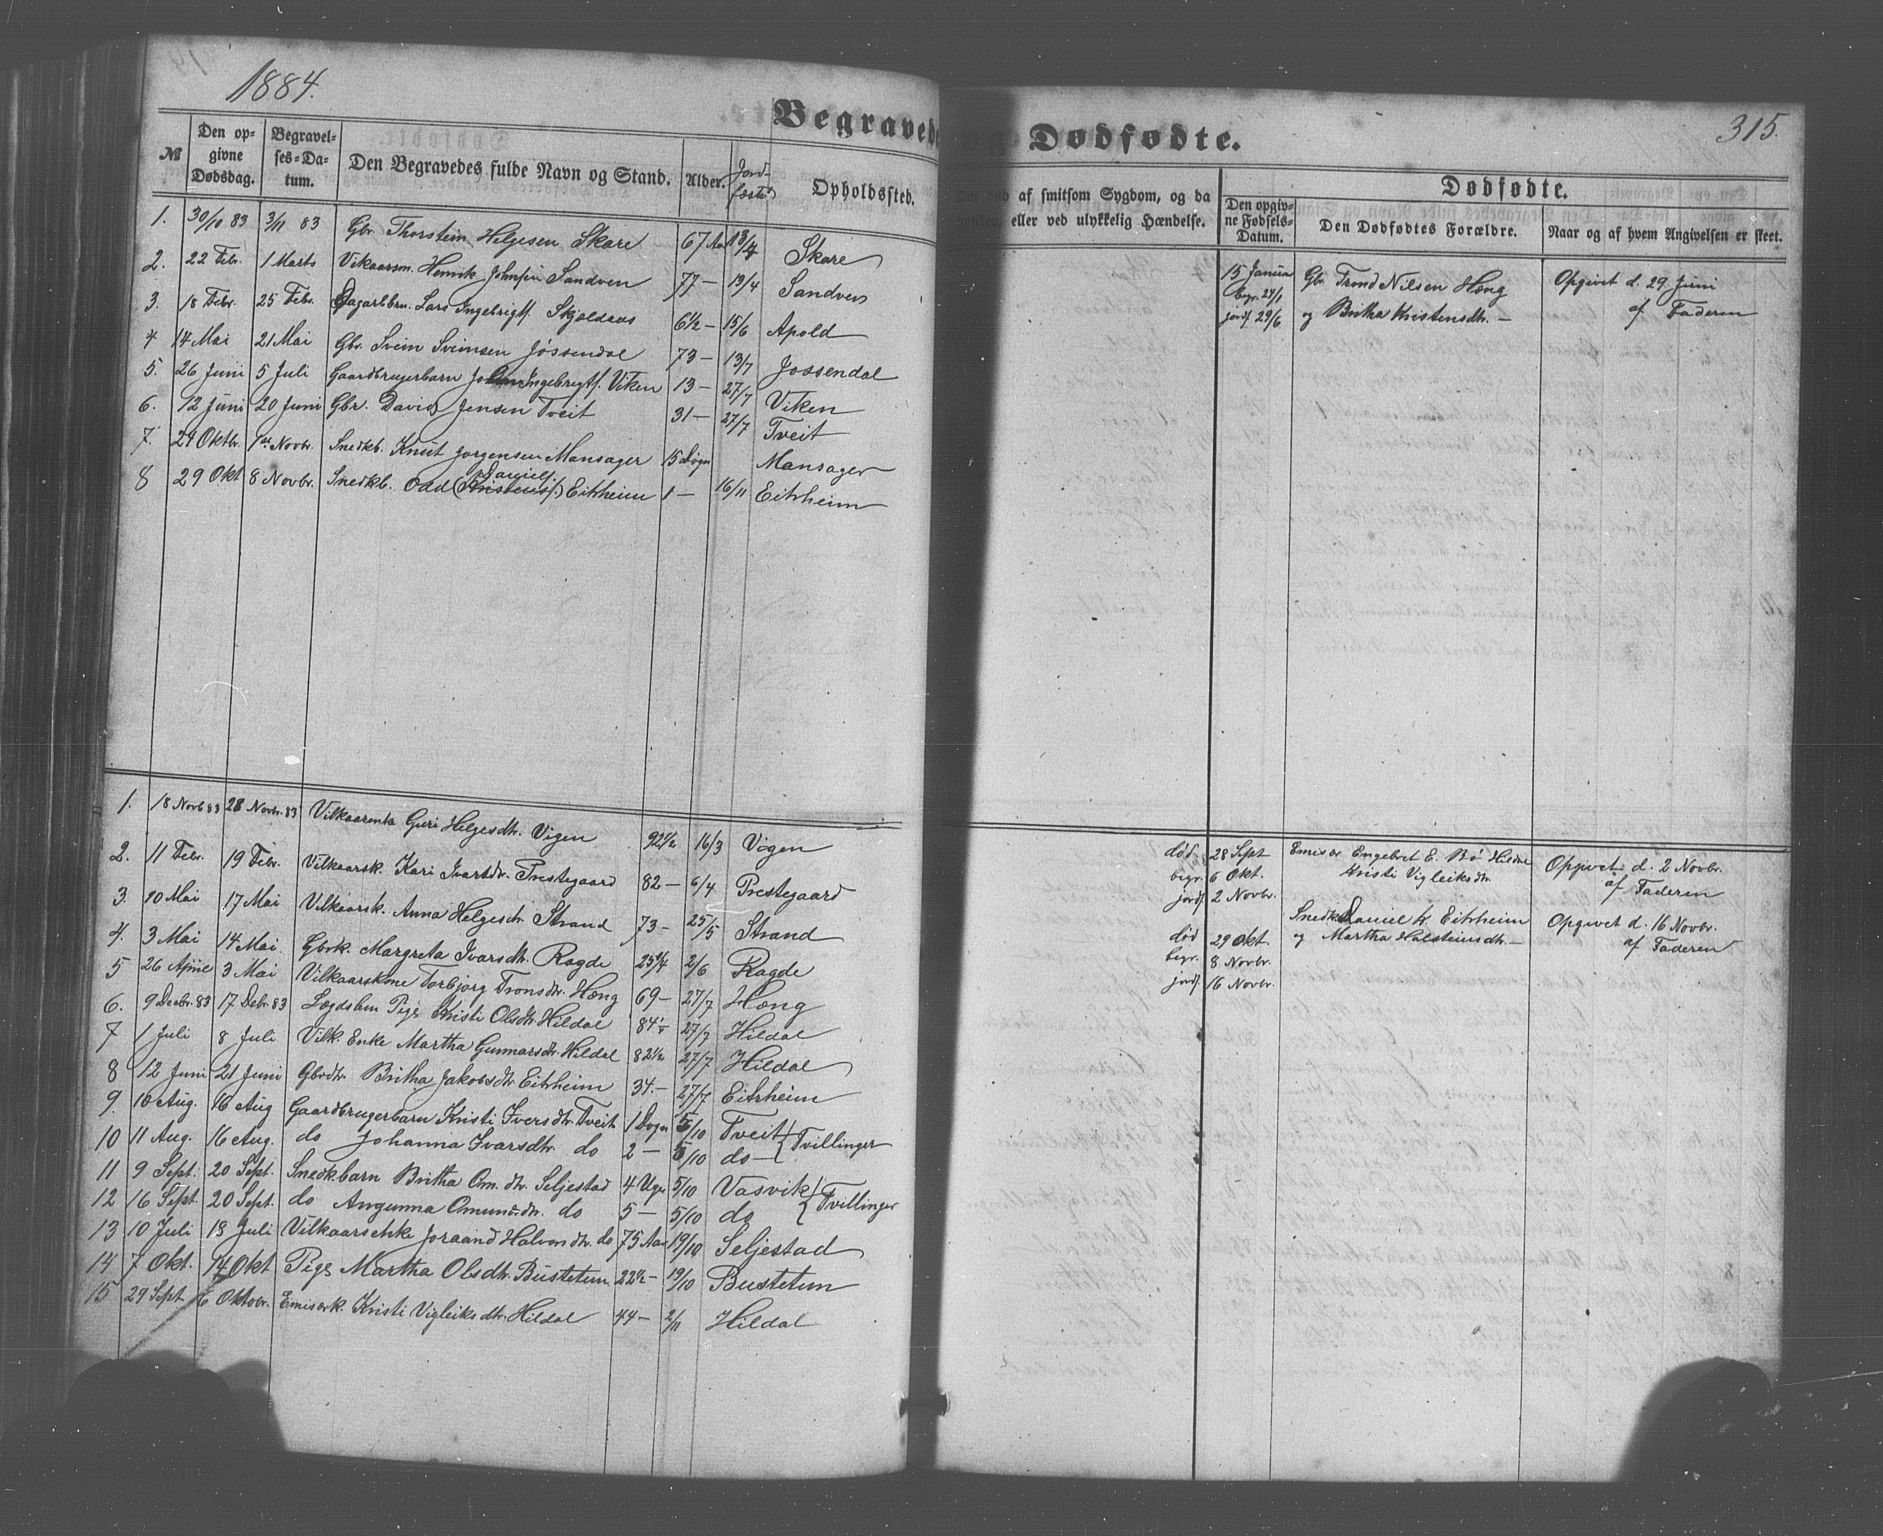 1884.
315.
Begravede
Dødfødte.
№ Den opgivne Dødsdag. Begravelses-Datum. Den Begravedes fulde Navn og Stand. Alder. Jordfæstet Opholdssted.
1. 30/10 83 3/11 83 Gbr. Thorstein Helgesen Skare 67 Aar 13/4 Skare
2. 22 Febr. 1 Marts Vilkaarsm. Henrik Johnsen Sandven 77 — 13/4 Sandven
3. 18 Febr. 25 Febr. Lars Ingebrigts. Skjoldaas 6 1/2 — 15/6 Apold
4 14 Mai 21 Mai Gbr. Svein Sveinsen Jøssendal 73 — 13/7 Jøssendal
5. 26 Juni 5 Juli Gaardbrugerbarn Ingebrigts. Viken 13 — 27/7 Viken
6. 12 Juni 20 Juni Gbr. David Jensen Tveit 31 — 27/7 Tveit
7. 24 Oktbr. 1ste Novbr. Snedkb. Knut Jørgensen Mansager 15 Døgn Mansager
Daniels.
8 29 Okt 8 Novbr. Snedkb. Odd (Kristens.) Eitrheim 1 — 16/11 Eitrheim
1. 18 Novb 83 28 Novbr. 83 Vilkaarenke Guri Helgesdtr. Vigen 92 1/2 16/3 Vigen
2. 11 Febr. 19 Febr. Vilkaarsk. Kari Ivarsdtr. Prestegaard 82 — 6/4 Prestegaard
3. 10 Mai 17 Mai Vilkaarsk. Anna Helgesdtr Strand 73 — 25/5 Strand
4. 3 Mai 14 Mai. Gbrk. Margreta Ivarsdtr. Ragde 2/6 Ragde
5 26 April 3 Mai Vilkaarskone Torbjørg Tronsdtr. Hæng 69 — 27/7 Hæng
6. 9 Decbr. 83 17 Debr. 83 Lægdslem Pige Kristi Olsdtr. Hildal 27/7 Hildal
7 1 Juli 8 Juli Vilk. Enke Martha Gunnarsdtr. Hildal 82 1/2 27/7 Hildal
8 12 Juni 21 Juni Gbrdtr. Britha Jakobsdtr Eitrheim 34. — 27/7 Eitrheim
9 10 Aug. 16 Aug Gaardbrugerbarn Kristi Iversdtr. Tveit 1 Døgn 5/10 Tveit } Tvillinger
10 11 Aug. 16 Aug. do Johanna Ivarsdtr. do 2 — 5/10 do —
11 9 Sept. 20 Sept. Snedkbarn Britha Om. dtr. Seljestad 4 Uger 5/10 Vasvik } Tvillinger
12 16 Sept. 20 Sept. do Angunna Omundsdtr. do 5 — 5/10 do
13 10 Juli 18 Juli Vilkaarsenke Joraand Halvorsdtr. do 75 Aar 19/10 Seljestad
14 7 Okt. 14 Okt Pige Martha Olsdtr. Bustetun 22 1/2 — 19/10 Bustetun
15 29 Sept 6 Oktobr. Emisærk. Kristi Vigleiksdtr. Hildal 44 — 2/11 Hildal
Om død af smitsom Sygdom, og da hvilken, eller ved ulykkelig Hændelse.
Dødfødte.
Den opgivne Fødsels-Datum. Den Dødfødtes Forældre. Naar og af hvem Angivelsen er skeet.
15 Januar Gbr. Trond Nilsen Hæng Opgivet d. 29 Juni
begr. 24/1
jordf. 29/6 og Britha Kristensdtr. — af Faderen
død 28 Sept Emisær Engebret E. Bø Hildal Opgivet d. 2 Novbr.
begr. 6 Okt. Kristi Vigleiksdtr af Faderen
jordf. 2 Novbr.
Snedk. Daniel Eitrheim Opgivet d. 16 Novbr.
død 29 Okt. og Martha Holsteinsdtr. — af Faderen
begr. 8 Novbr.
jordf. 16 Novbr.